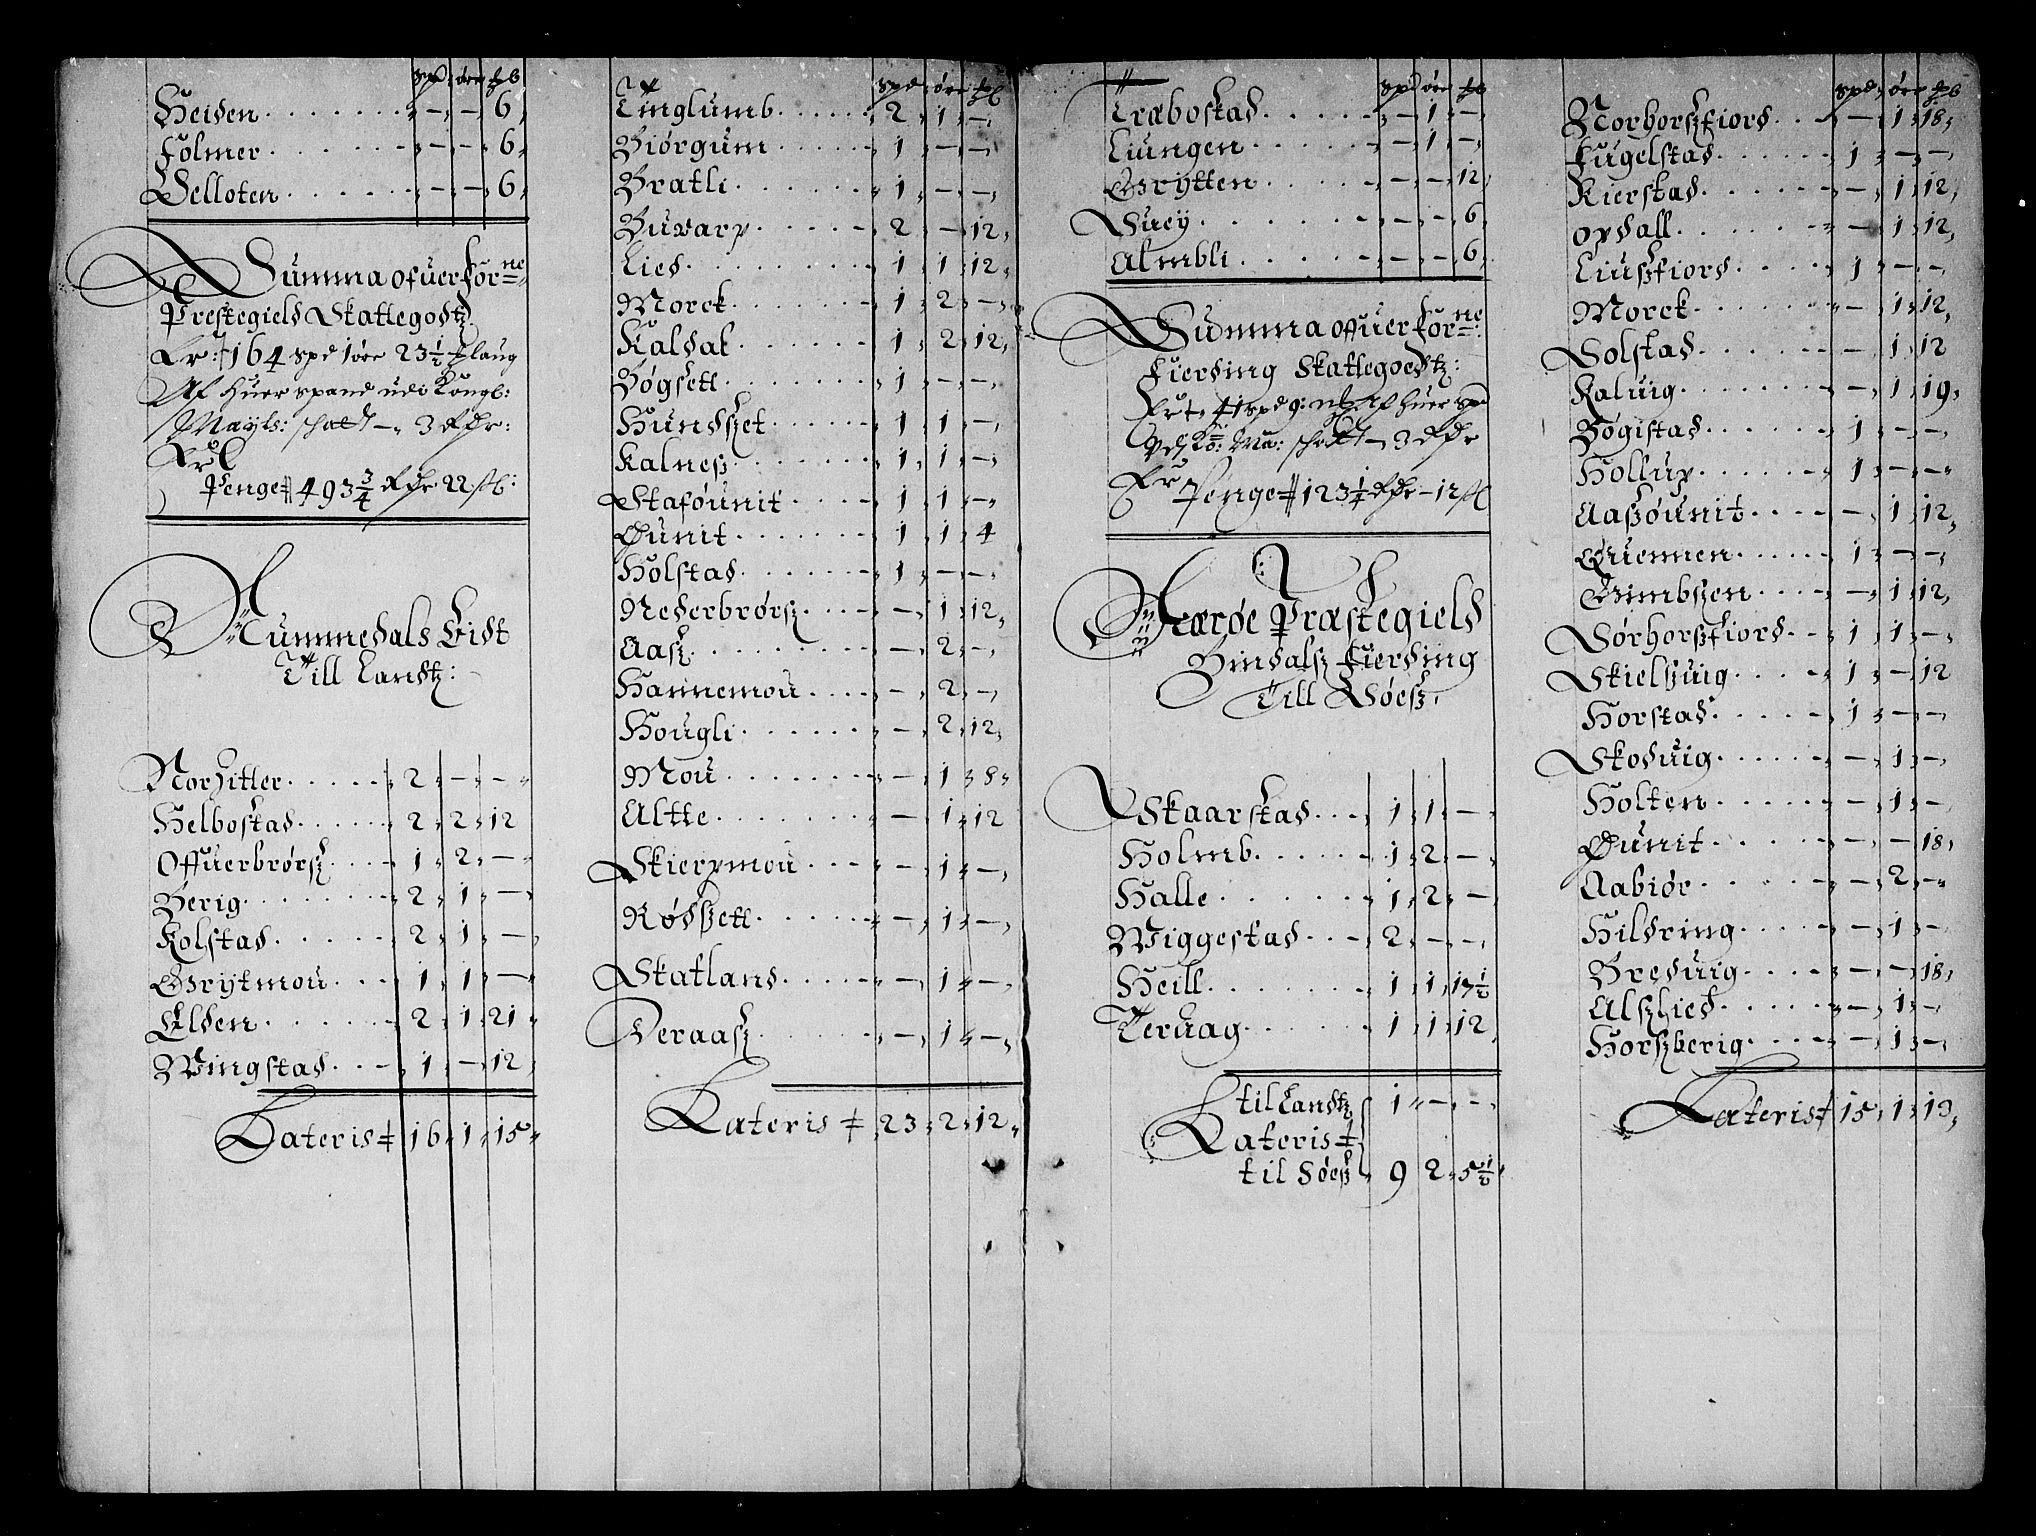 spd: øre ℔
Heiden . . . . . . — — 6,
Folmer . . . . . . — — 6,
Velloten . . . . . — — 6,
Summa ofuer forne
Prestegield Skattegodtz
Er: 164 spd 1 øre 23½
Af huer spand udi Kongl:
Mayts: schatt — 3
Er
Penge 493¾ 22 sk:
Nummedals Eidt
Till Landtz:
Norhitler . . . . . 2, —, —
Helbostad . . . . . 2, 2, 12
Offuerbrørsz . . . 1, 2, —
Berig . . . . . . . 2, 1, —
Kolstad . . . . . 2, 1, —
Grytmou . . . 1, 1, —
Elden . . . . . . 2, 1, 21
Wingstad . . . 1, —, 12,
Lateris 16, 1, 15
spd: øre ℔
Tinglumb . . . . . 2, 1, —,
Biørgum . . . . . 1, —, —,
Bratli . . . . . . 1, —, —,
Buvarp . . . . . 2, —, 12,
Lied . . . . . . . 1, 1, 12,
Morck . . . . . . 1, 2, —,
Kaldal . . . . . . 1, 2, 12,
Bøgsett . . . . . 1, —, —,
Hundszet . . . . 1, 1, —,
Kalnesz . . . . . 1, 1, —,
Staføunit . . . . 1, 1, —,
Øunit . . . . . . 1, 1, 4
Holstad . . . . . 1, —, —,
Nederbrørsz . . —, 1, 12,
Aasz . . . . . . . —, 2, —,
Hannemou . . . —, 2, —,
Hougli . . . . . . —, 2, 12,
Mou . . . . . . . —, 1, 8,
Altte . . . . . . —, 1, 12
Skierpmou . . . —, 1, —,
Rødszett . . . . . —, 1, —,
Skatland . . . . . —, 1, —,
Veraasz . . . . . —, 1, —,
Lateris 23, 2, 12,
spd øre ℔
Træbostad . . . . —, 1, —,
Liungen . . . . . —, 1, —,
Grytten . . . . . —, —, 12,
Suey . . . . . . . —, —, 6,
Almbli . . . . . . —, —, 6,
Summa offuer forne:
Fierding Skattegoedtz:
Er 41 spd 9: Af huer spd
Ko: Ma: schatt — 3
Er Penge 123¼ — 12 sk
Nærøe Præstegield
Bindalsz Fierding
Till Søesz,
Skaarstad . . . 1, 1, —,
Holmb . . . . . 1, 2, —,
Halle . . . . . . 1, 2, —,
Wiggestad . . . 2, —, —,
Heill . . . . . . 1, 1, 17½
Teruag . . . . . 1, 1, 12,
til Landtz 1, —, —,
Lateris
til Søesz 9 2, 5½,
spd, øre ℔
Norhorszfiord . . —, 1, 18,
Fugelstad . . . . . 1, —, —
Kierstad . . . . . —, 1, 12,
opdall . . . . . . —, 1, 12,
Liuszfiord . . . . 1, —, —,
Morck . . . . . . —, 1, 12,
Solstad . . . . . —, 1, 12
Kaluig . . . . . . —, 1, 19,
Bøgistad . . . . . 1, —, —,
Hollup . . . . . . 1, —, —,
Aaszøunit . . . . —, 1, 12,
Quennen . . . . . 1, —, —,
Gimbszen . . . . —, 1, 12,
Sørhorszfiord . . 1, 1, —,
Skielszuig . . . . 1, —, 12
Horstad . . . . . 1, —, —,
Skoduig . . . . . —, 1, —,
Holten . . . . . . —, 1, —,
Øunit . . . . . . —, —, 18,
Aabiør . . . . . . —, 2, —,
Hildring . . . . . —, 1, —,
Breduig . . . . . —, —, 18,
Alszlied . . . . . —, 1, —,
Horszberig . . . . —, 1, —,
Lateris 15, 1, 19,